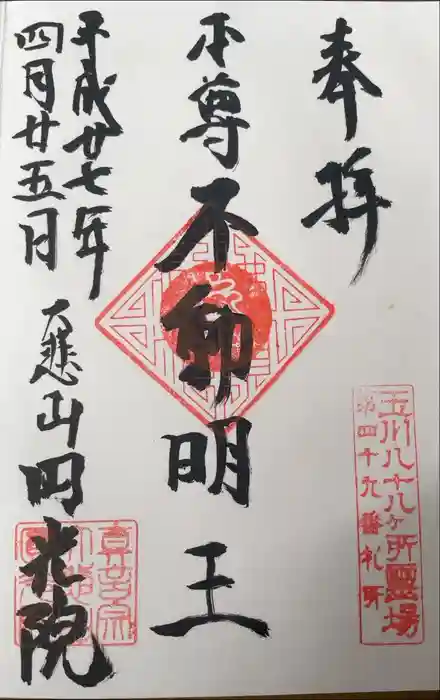 奉拝
玉川八十八ヶ所霊場
第四十九番札所
本尊不動明王
平成廿七年
四月廿五日
大悲山円光院